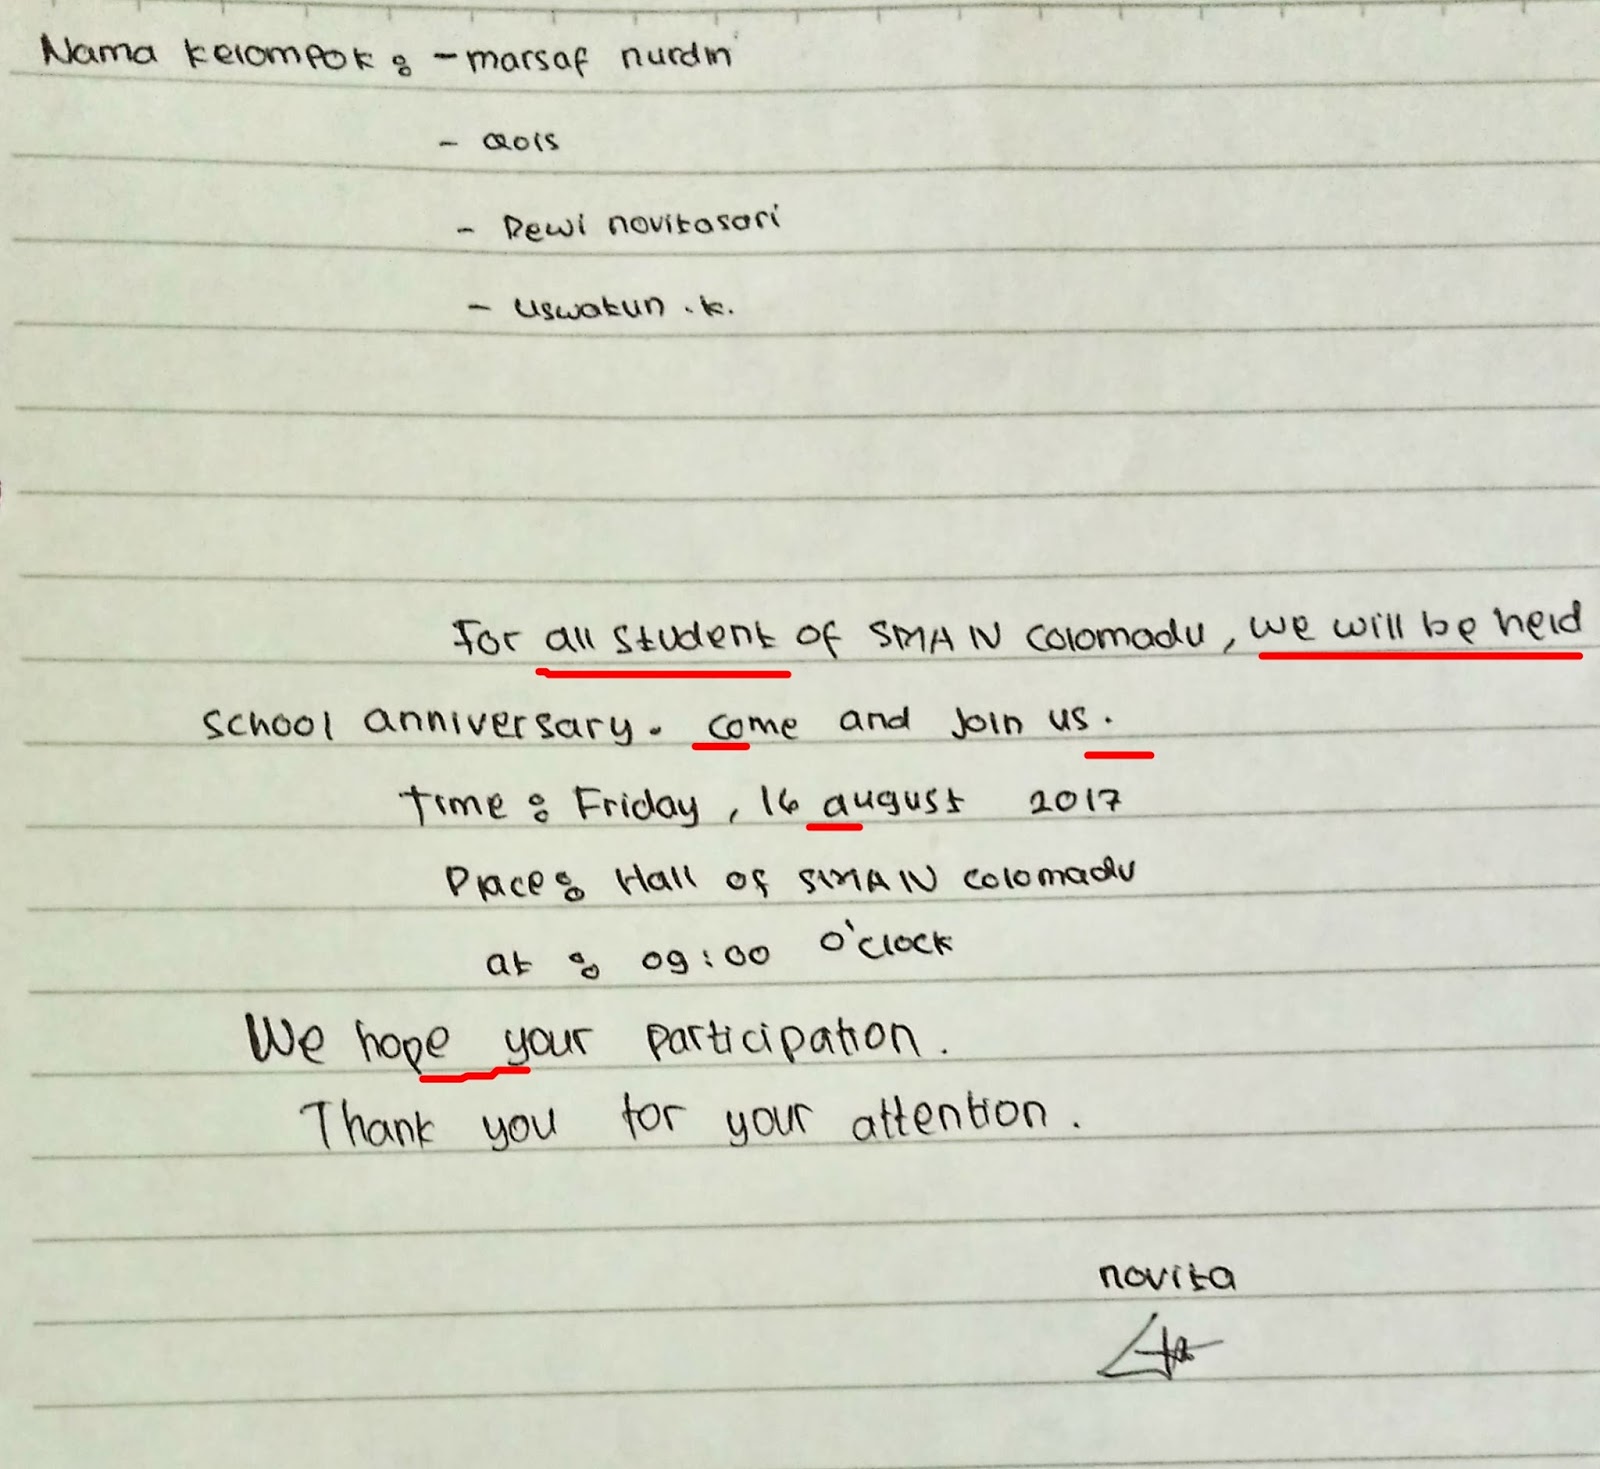 Nama kelompok : - marsaf nurdin
- Qois
- Dewi novitasari
- Uswatun . k.
For all student of SMA N Colomadu, we will be held
school anniversary. come and join us.
Time : Friday, 16 august 2017
Place : Hall of SMA N Colomadu
at : 09:00 o'clock
We hope your participation.
Thank you for your attention.
novita